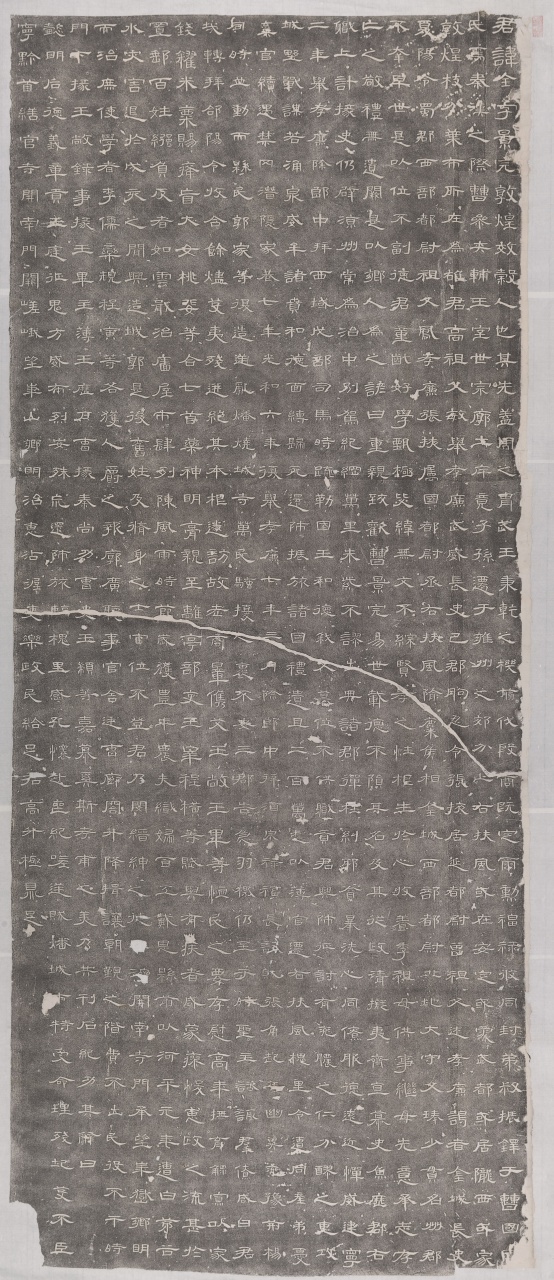 君諱全字景完敦煌效穀人也其先蓋周之胄武王秉乾之機翦伐殷商既定爾勳福祿攸同封弟叔振鐸于曹國
氏焉秦漢之際曹參夾輔王室世宗廓土斥竟子孫遷于雍州之郊分止右扶風或在安定或處武都或居隴西或家
敦煌枝分葉布所在為雄君高祖父敏舉孝廉武威長史巴郡朐忍令張掖居延都尉曾祖父述孝廉謁者金城長史
夏陽令蜀郡西部都尉祖父鳳孝廉張掖屬國都尉丞右扶風隃麋侯相金城西部都尉北地大守父琫少貫名州郡
不幸早世是以位不副德君童齔好學甄極毖緯無文不綜賢孝之性根生於心收養季祖母供事繼母先意承志存
亡之敬禮無遺闕是以鄉人為之諺曰重親致歡曹景完易世載德不隕其名及其從政清擬夷齊直慕史魚歷郡右
職上計掾史仍辟涼州常為治中別駕紀綱萬里朱紫不謬出典諸郡彈枉糾邪貪暴洗心同僚服德遠近憚威建寧
二年舉孝廉除郎中拜西域戊部司馬時疏勒國王和德弒父篡位不供職貢君興師征討有吮膿之仁分醪之惠攻
城野戰謀若涌泉威牟諸賁和德面縛歸死還師振旅諸國禮遺且二百萬悉以薄官遷右扶風槐里令遭同產弟憂
棄官續遇禁冈潛隱家巷七年光和六年復舉孝廉七年三月除郎中拜酒泉祿福長訞賊張角起兵幽冀兗豫荊楊
同時並動而縣民郭家等復造逆亂燔燒城寺萬民騷擾人裹不安三郡告急羽檄仍至于時聖主諮諏群僚咸曰君
哉轉拜郃陽令收合餘燼芟夷殘迸絕其本根遂訪故老商量儁艾王敞王畢等恤民之要存慰高年撫育鰥寡以家
錢糴米粟賜癃盲大女桃斐等合七首藥神明膏親至離亭部吏王皋程橫等賦與有疾者咸蒙瘳悛惠政之流甚於
置郵百姓繦負反者如雲戢治廧屋市肆列陳風雨時節歲獲豐年農夫織婦百工戴恩縣前以河平元年遭白茅谷
水災害退於戌亥之間興造城郭是後舊姓及脩身之士官位不登君乃閔縉紳之徒不濟開南寺門承望華嶽鄉明
而治庶使學者李儒欒規程寅等各獲人爵之報廓廣聽事官舍廷曹廊閤升降揖讓朝覲之階費不出民役不干時
門下掾王敞錄事掾王畢主薄王歷戶曹掾秦尚功曹史王顓等嘉慕奚斯考甫之美乃共刊石紀功其辭曰
懿明后德義章貢王庭征鬼方威布烈安殊巟還師旅臨槐里感孔懷赴喪紀嗟逆賊燔城市特受命理殘圮芟不臣
寧黔首繕官寺開南門闕嵯峨望華山鄉明治惠沾渥吏樂政民給足君高升極鼎足